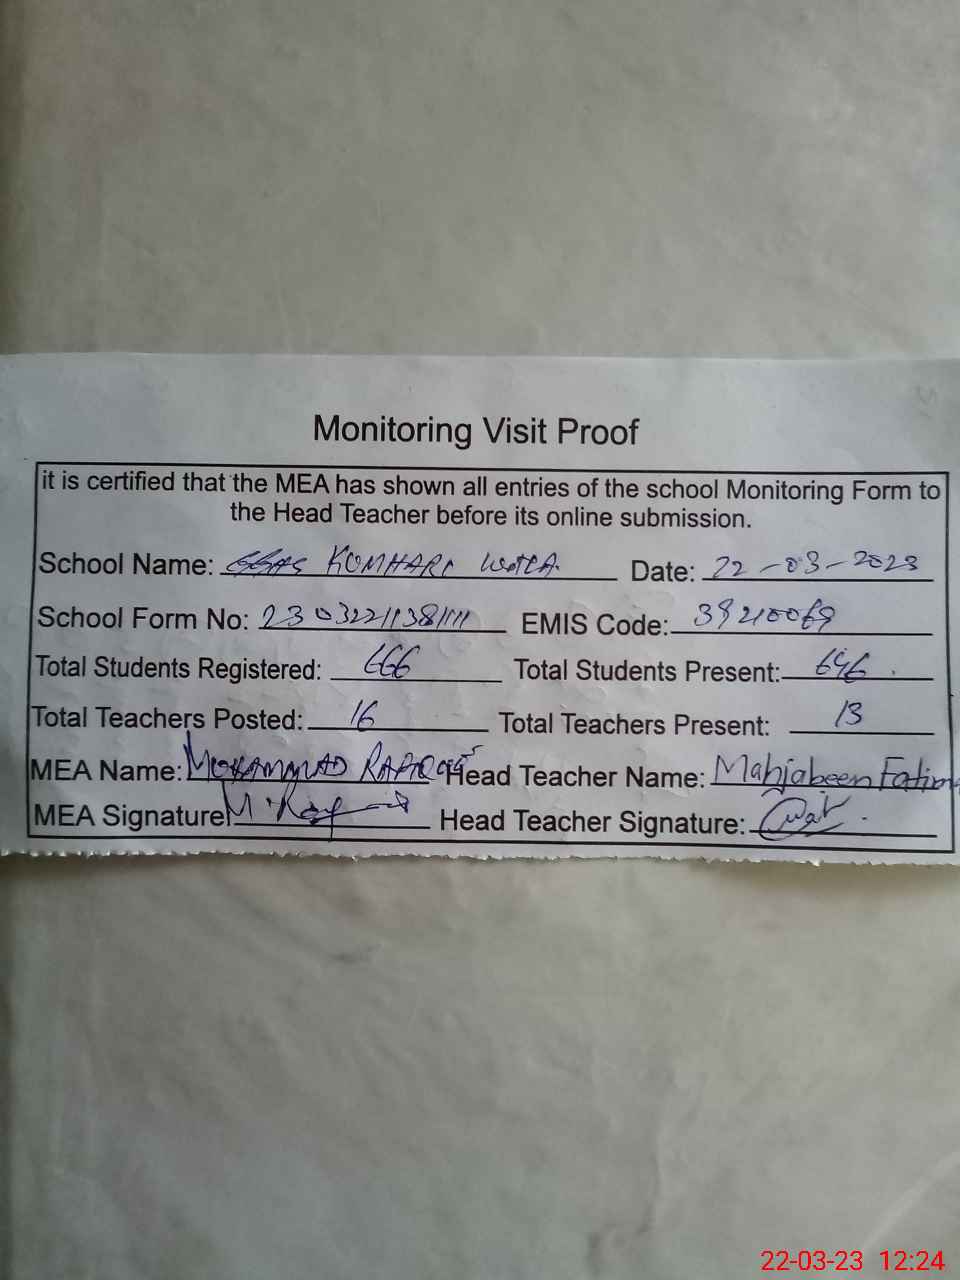 Monitoring Visit Proof
it is certified that the MEA has shown all entries of the school Monitoring Form to
the Head Teacher before its online submission.
School Name: KUMHARI WALA. Date: 22-03-2023
School Form No: EMIS Code: 39210069
Total Students Registered: 666 Total Students Present: 646.
Total Teachers Posted: 16 Total Teachers Present: 13
MEA Name: MOHAMMAD Head Teacher Name: Mahjabeen Fatima
MEA Signature Head Teacher Signature:
22-03-23 12:24